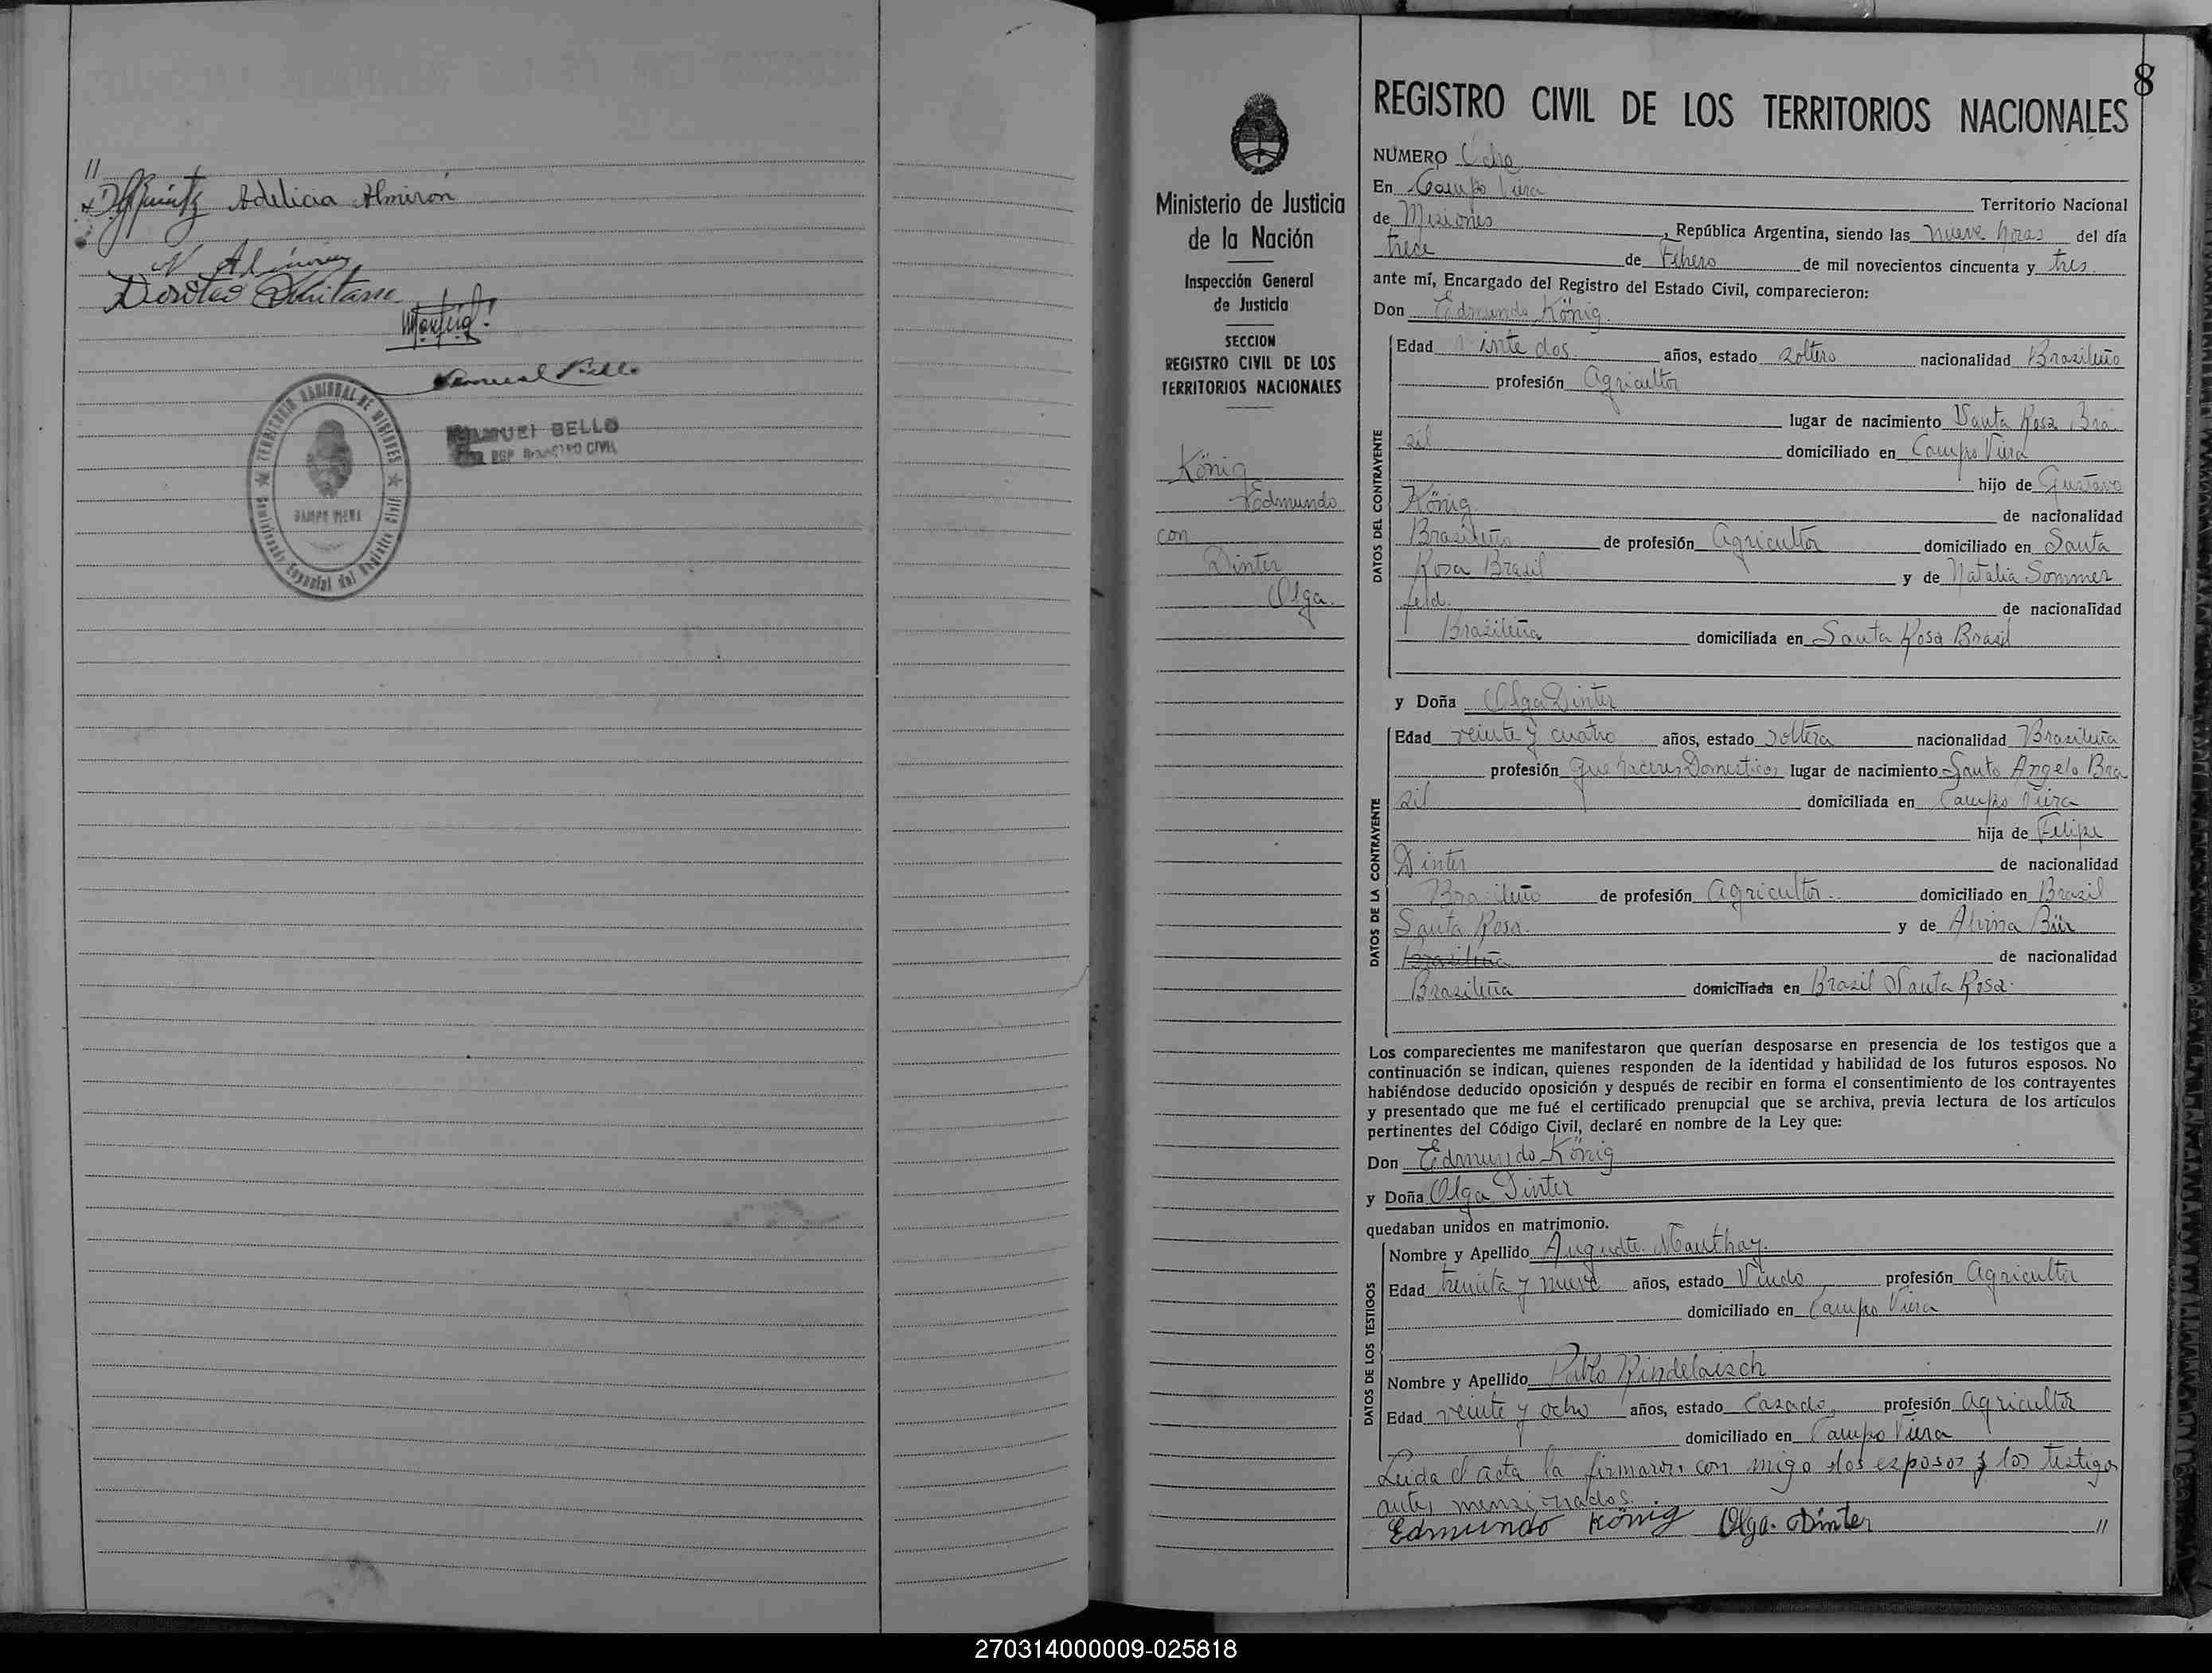 11
Adelicia Almirón
MANUEL BELLO
TERRITORIO NACIONAL DE MISIONES
CAMPO VIERA
8
Ministerio de Justicia
de la Nación
Inspección General
de Justicia
SECCION
REGISTRO CIVIL DE LOS
TERRITORIOS NACIONALES
König
Edmundo
con
Dinter
Olga.
REGISTRO CIVIL DE LOS TERRITORIOS NACIONALES
NUMERO Ocho
En Campo Viera
Territorio Nacional
de Misiones, República Argentina, siendo las nueve horas del día
trece de Febrero de mil novecientos cincuenta y tres.
ante mí, Encargado del Registro del Estado Civil, comparecieron:
Don Edmundo König.
DATOS DEL CONTRAYENTE
Edad Vinte dos. años, estado soltero nacionalidad Brasileño
profesión Agricultor
lugar de nacimiento Santa Rosa Bra
zil domiciliado en Campo Viera
hijo de Gustavo
König. de nacionalidad
Brasileño de profesión Agricultor domiciliado en Santa
Rosa Brasil y de Natalia Sommer
feld. de nacionalidad
Brasileña domiciliada en Santa Rosa Brasil
y Doña Olga Dinter
DATOS DE LA CONTRAYENTE
Edad veinte y cuatro años, estado soltera nacionalidad Brasileña
profesión Que haceres Domesticos lugar de nacimiento Santo Angelo Bra
zil domiciliada en Campo Viera
hija de Felipe
Dinter de nacionalidad
Brasileño de profesión Agricultor. domiciliado en Brazil
Santa Rosa. y de Alvina Bür
Brasileña de nacionalidad
Brasileña domiciliada en Brazil Santa Rosa.
Los comparecientes me manifestaron que querían desposarse en presencia de los testigos que a
continuación se indican, quienes responden de la identidad y habilidad de los futuros esposos. No
habiéndose deducido oposición y después de recibir en forma el consentimiento de los contrayentes
y presentado que me fué el certificado prenupcial que se archiva, previa lectura de los artículos
pertinentes del Código Civil, declaré en nombre de la Ley que:
Don Edmundo König
y Doña Olga Dinter
quedaban unidos en matrimonio.
DATOS DE LOS TESTIGOS
Nombre y Apellido Auguste Manthay.
Edad treinta y nueve años, estado Viudo, profesión Agricultor
domiciliado en Campo Viera
Nombre y Apellido Pablo Rindelaisch
Edad veinte y ocho años, estado Casado, profesión Agricultor
domiciliado en Campo Viera
Leida el acta la firmaron con migo los esposos y los testigos
antes menzionados.
Edmundo König Olga Dinter 11
270314000009-025818